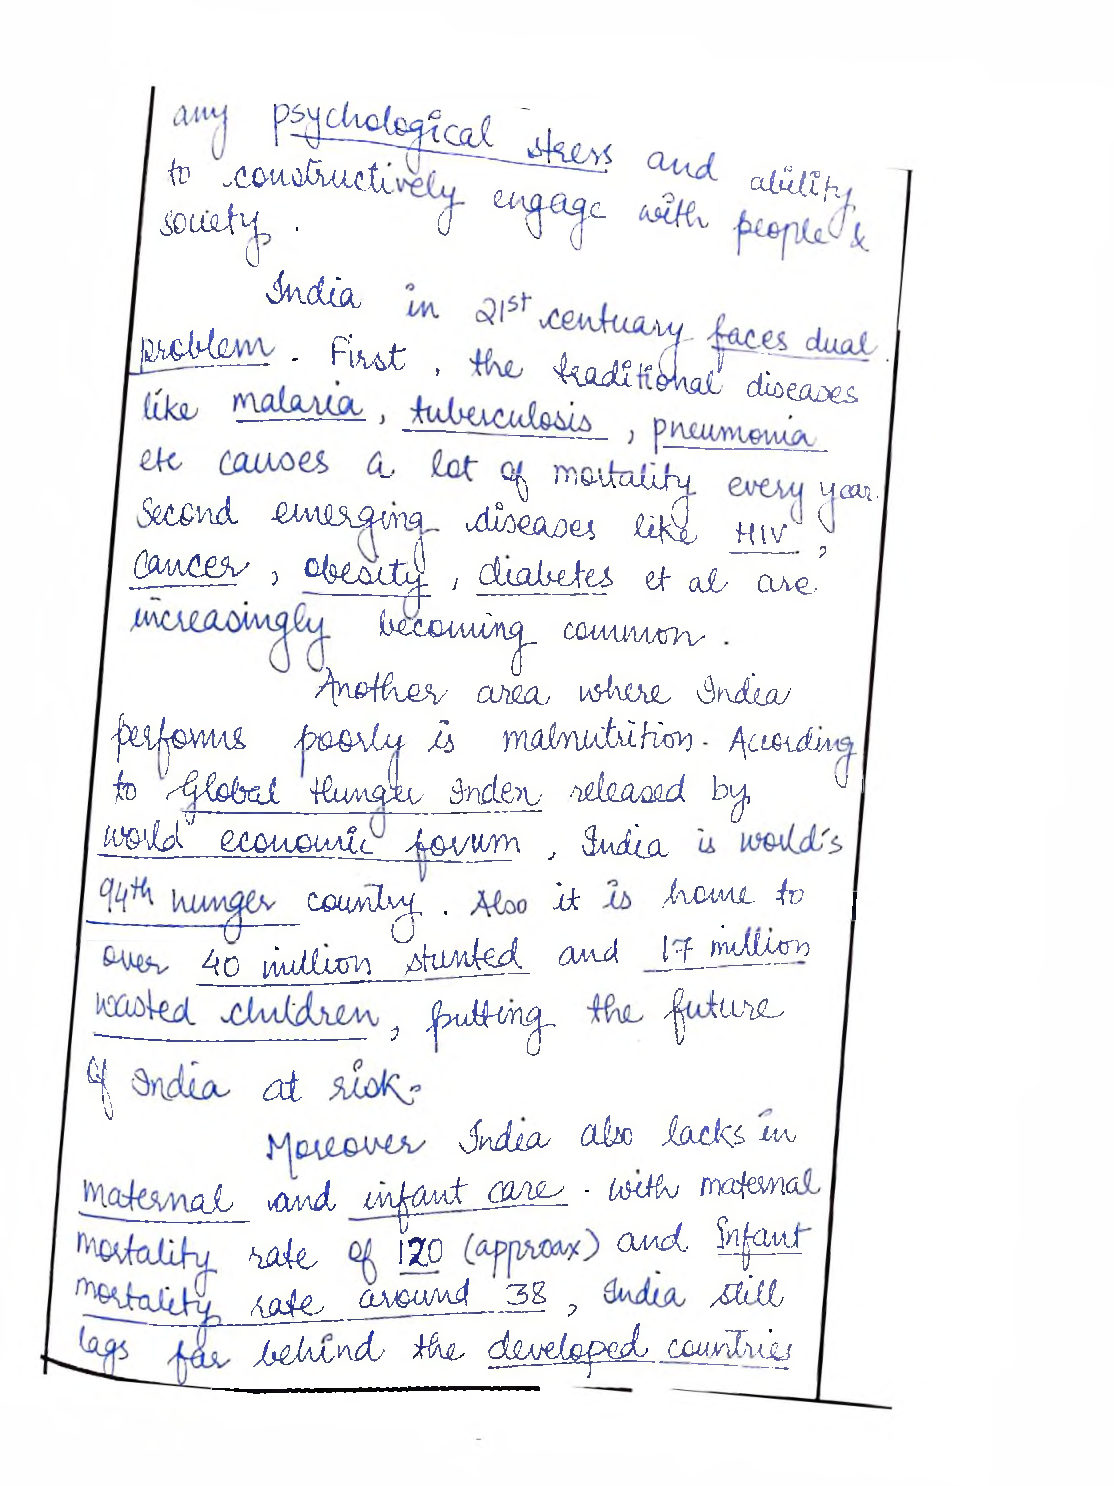 any psychological stress and ability
to constructively engage with people &
society.
India in 21st centuary faces dual
problem. First, the traditional diseases
like malaria, tuberculosis, pneumonia
etc causes a lot of mortality every year.
Second emerging diseases like HIV,
cancer, obesity, diabetes et al are
increasingly becoming common.
Another area where India
performs poorly is malnutrition. According
to Global Hunger Index released by
world economic forum, India is world's
94th hunger country. Also it is home to
over 40 million stunted and 17 million
wasted children, putting the future
of India at risk.
Moreover India also lacks in
maternal and infant care. with maternal
mortality rate of 120 (approax) and Infant
mortality rate around 38, India still
lags far behind the developed countries